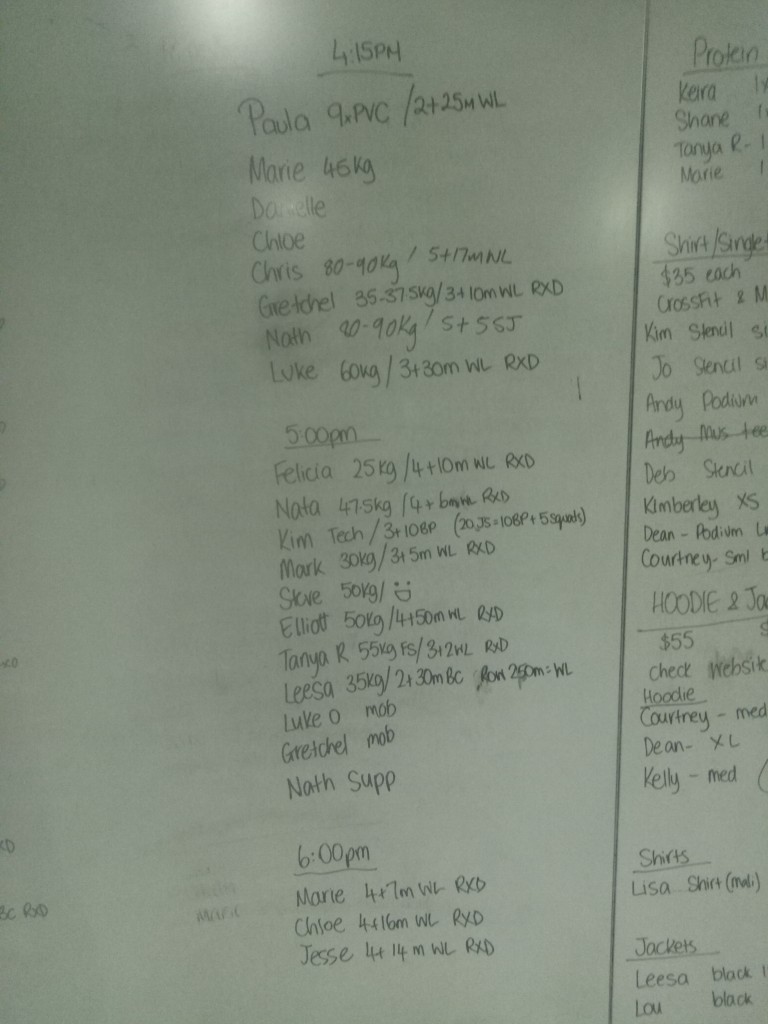 4:15PM
Paula 9xPVC /2+25m WL
Marie 45kg
Danielle
Chloe
Chris 80-90kg / 5+17m WL
Gretchel 35-37.5kg/3+10m WL RXD
Nath 80-90kg / 5+5SJ
Luke 60kg / 3+30m WL RXD
5:00pm
Felicia 25kg /4+10m WL RXD
Nata 47.5kg /4+6m WL RXD
Kim Tech / 3+10BP (20JS=10BP+5squats)
Mark 30kg/3+5m WL RXD
Steve 50kg/
Elliott 50kg/4+50m WL RXD
Tanya R 55kg FS/3+2WL RXD
Leesa 35kg/2+30m BC Row 250m=WL
Luke O mob
Gretchel mob
Nath Supp
6:00pm
Marie 4+7m WL RXD
Chloe 4+16m WL RXD
Jesse 4+14m WL RXD
Marie
BC RXD
Protein
Keira
Shane
Tanya R- 1
Marie 1
Shirt/Singlet
$35 each
CrossFit & M
Kim Stencil si
Jo Stencil si
Andy Podium
Andy Mus tee
Deb Stencil
Kimberley XS
Dean - Podium
Courtney- Sml
HOODIE & Ja
$55
check website
Hoodie
Courtney - med
Dean- XL
Kelly - med
Shirts
Lisa Shirt
Jackets
Leesa black
Lou black